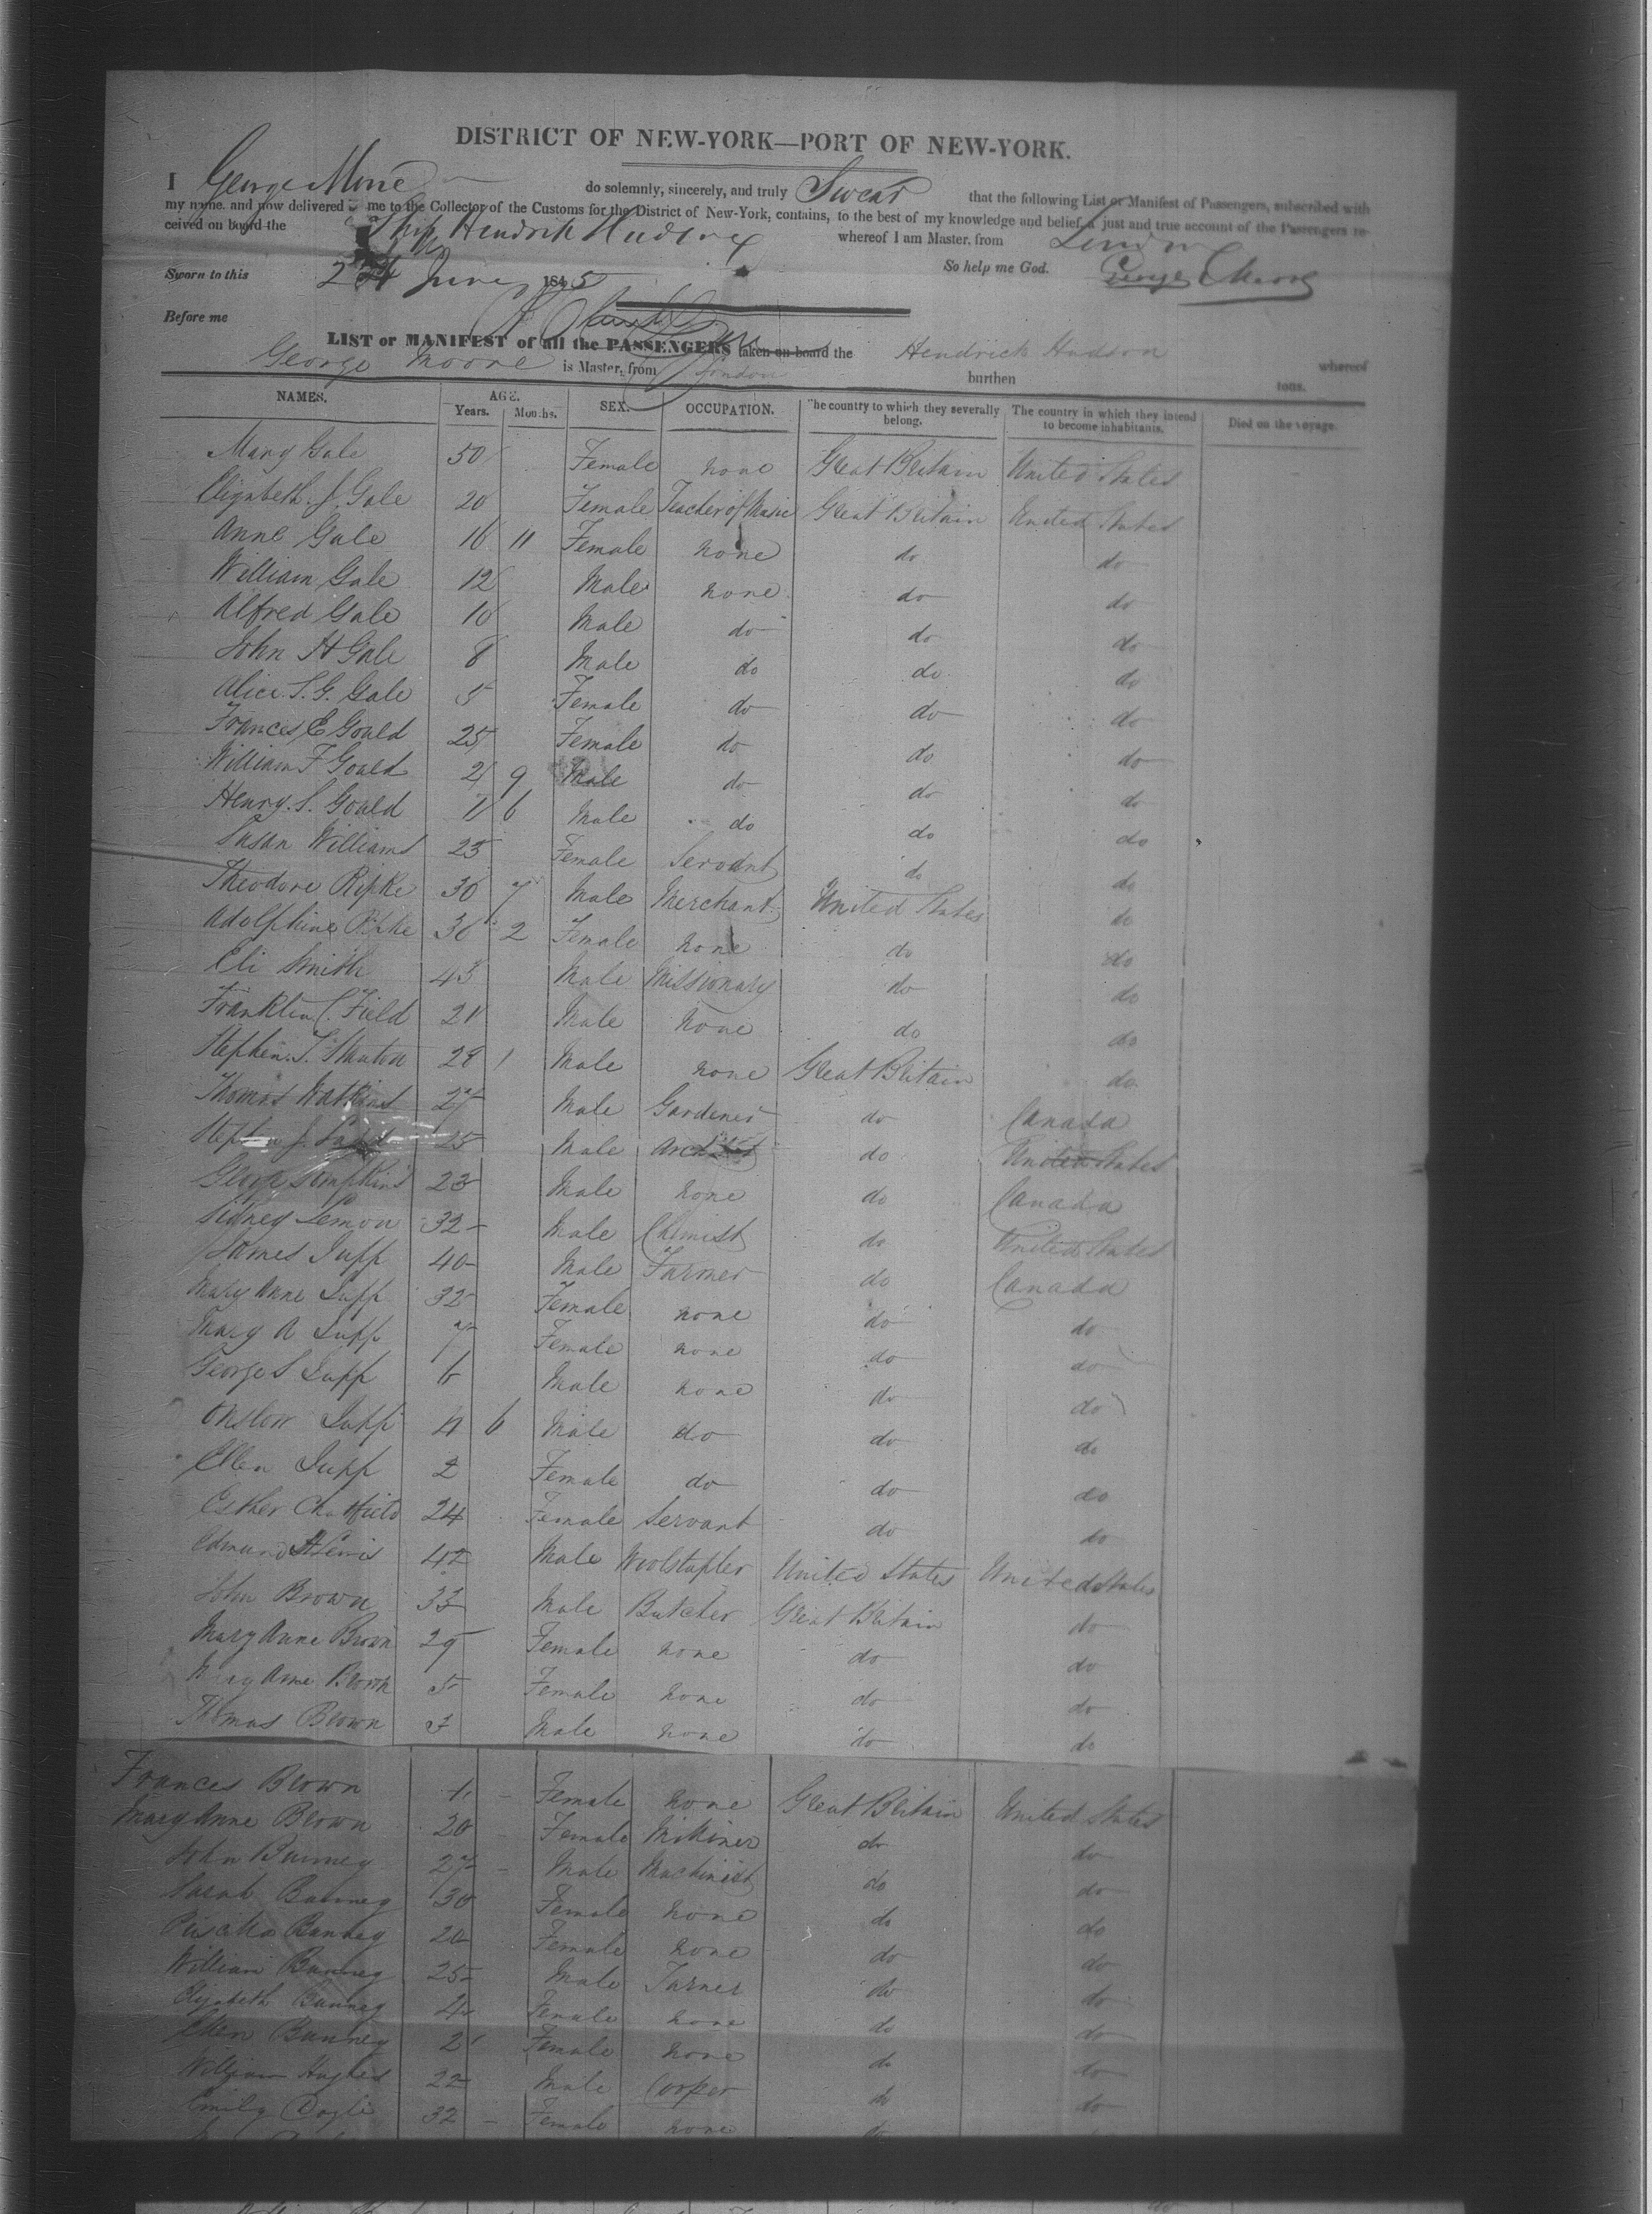 DISTRICT OF NEW-YORK—PORT OF NEW-YORK.
I George Moore do solemnly, sincerely, and truly Swear that the following List or Manifest of Passengers, subscribed with
my name, and now delivered by me to the Collector of the Customs for the District of New-York, contains, to the best of my knowledge and belief, a just and true account of the Passengers re-
ceived on board the Ship Hendrick Hudson whereof I am Master, from London
Sworn to this June 1845 So help me God. George Moore
Before me
LIST or MANIFEST of all the PASSENGERS taken on board the Hendrick Hudson whereof
George Moore is Master, from London burthen tons.
NAMES. AGE. Years. Months. SEX. OCCUPATION. The country to which they severally belong. The country in which they intend to become inhabitants. Died on the voyage.
Mary Gale 50 Female none Great Britain United States
Elizabeth J. Gale 20 Female Teacher of Music Great Britain United States
Anne Gale 16 11 Female none do do
William Gale 12 Male none do do
Alfred Gale 10 Male do do do
John H Gale 8 Male do do do
Alice S. G. Gale 5 Female do do do
Frances E Gould 25 Female do do do
William F Gould 2 9 Male do do do
Henry S. Gould 1 6 Male do do do
Susan Williams 25 Female Servant do do
Theodore Ripke 36 7 Male Merchant United States do
Adolphine Ripke 36 2 Female none do do
Eli Smith 43 Male Missionary do do
Franklin C. Field 21 Male none do do
Stephen 28 1 Male none Great Britain do
Thomas Watkins 27 Male Gardener do Canada
Stephen J. 25 Male Architect do United States
George 23 Male none do Canada
Sidney Lemon 32 Male Chemist do United States
James Jupp 40 Male Farmer do Canada
Mary Anne Jupp 32 Female none do do
Mary A Jupp 7 Female none do do
George S Jupp 6 Male none do do
Onslow Jupp 4 6 Male do do do
Ellen Jupp 2 Female do do do
Esther Chatfield 24 Female Servant do do
Edmund Lewis 42 Male Woolstapler United States United States
John Brown 33 Male Butcher Great Britain do
Mary Anne Brown 29 Female none do do
Mary Anne Brown 5 Female none do do
Thomas Brown 3 Male none do do
Frances Brown 1 Female none Great Britain United States
Mary Anne Brown 20 Female Milliner do do
John Bunney 27 Male Machinist do do
Sarah Bunney 30 Female none do do
Priscilla Bunney 20 Female none do do
William Bunney 25 Male Turner do do
Elizabeth Bunney 4 Female none do do
Ellen Bunney 2 Female none do do
William Hughes 22 Male Cooper do do
Emily 32 Female none do